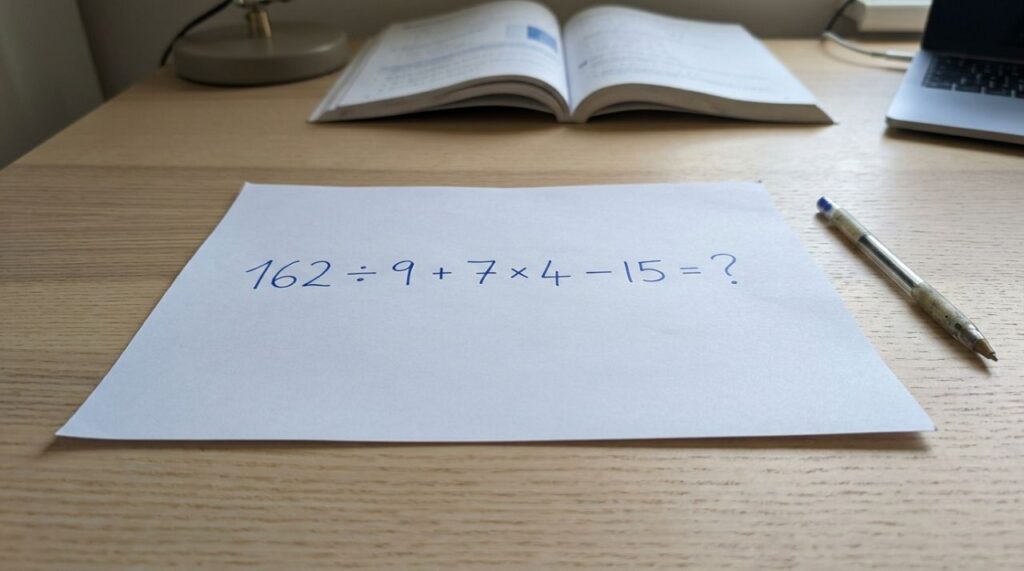 162 ÷ 9 + 7 × 4 − 15 = ?